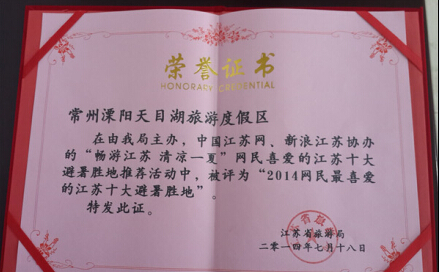 荣誉证书
HONORARY CREDENTIAL
常州溧阳天目湖旅游度假区
在由我局主办，中国江苏网、新浪江苏协办
的“畅游江苏 清凉一夏”网民喜爱的江苏十大
避暑胜地推荐活动中，被评为“2014网民最喜爱
的江苏十大避暑胜地”。
特发此证。
江苏省旅游局
二〇一四年七月十八日